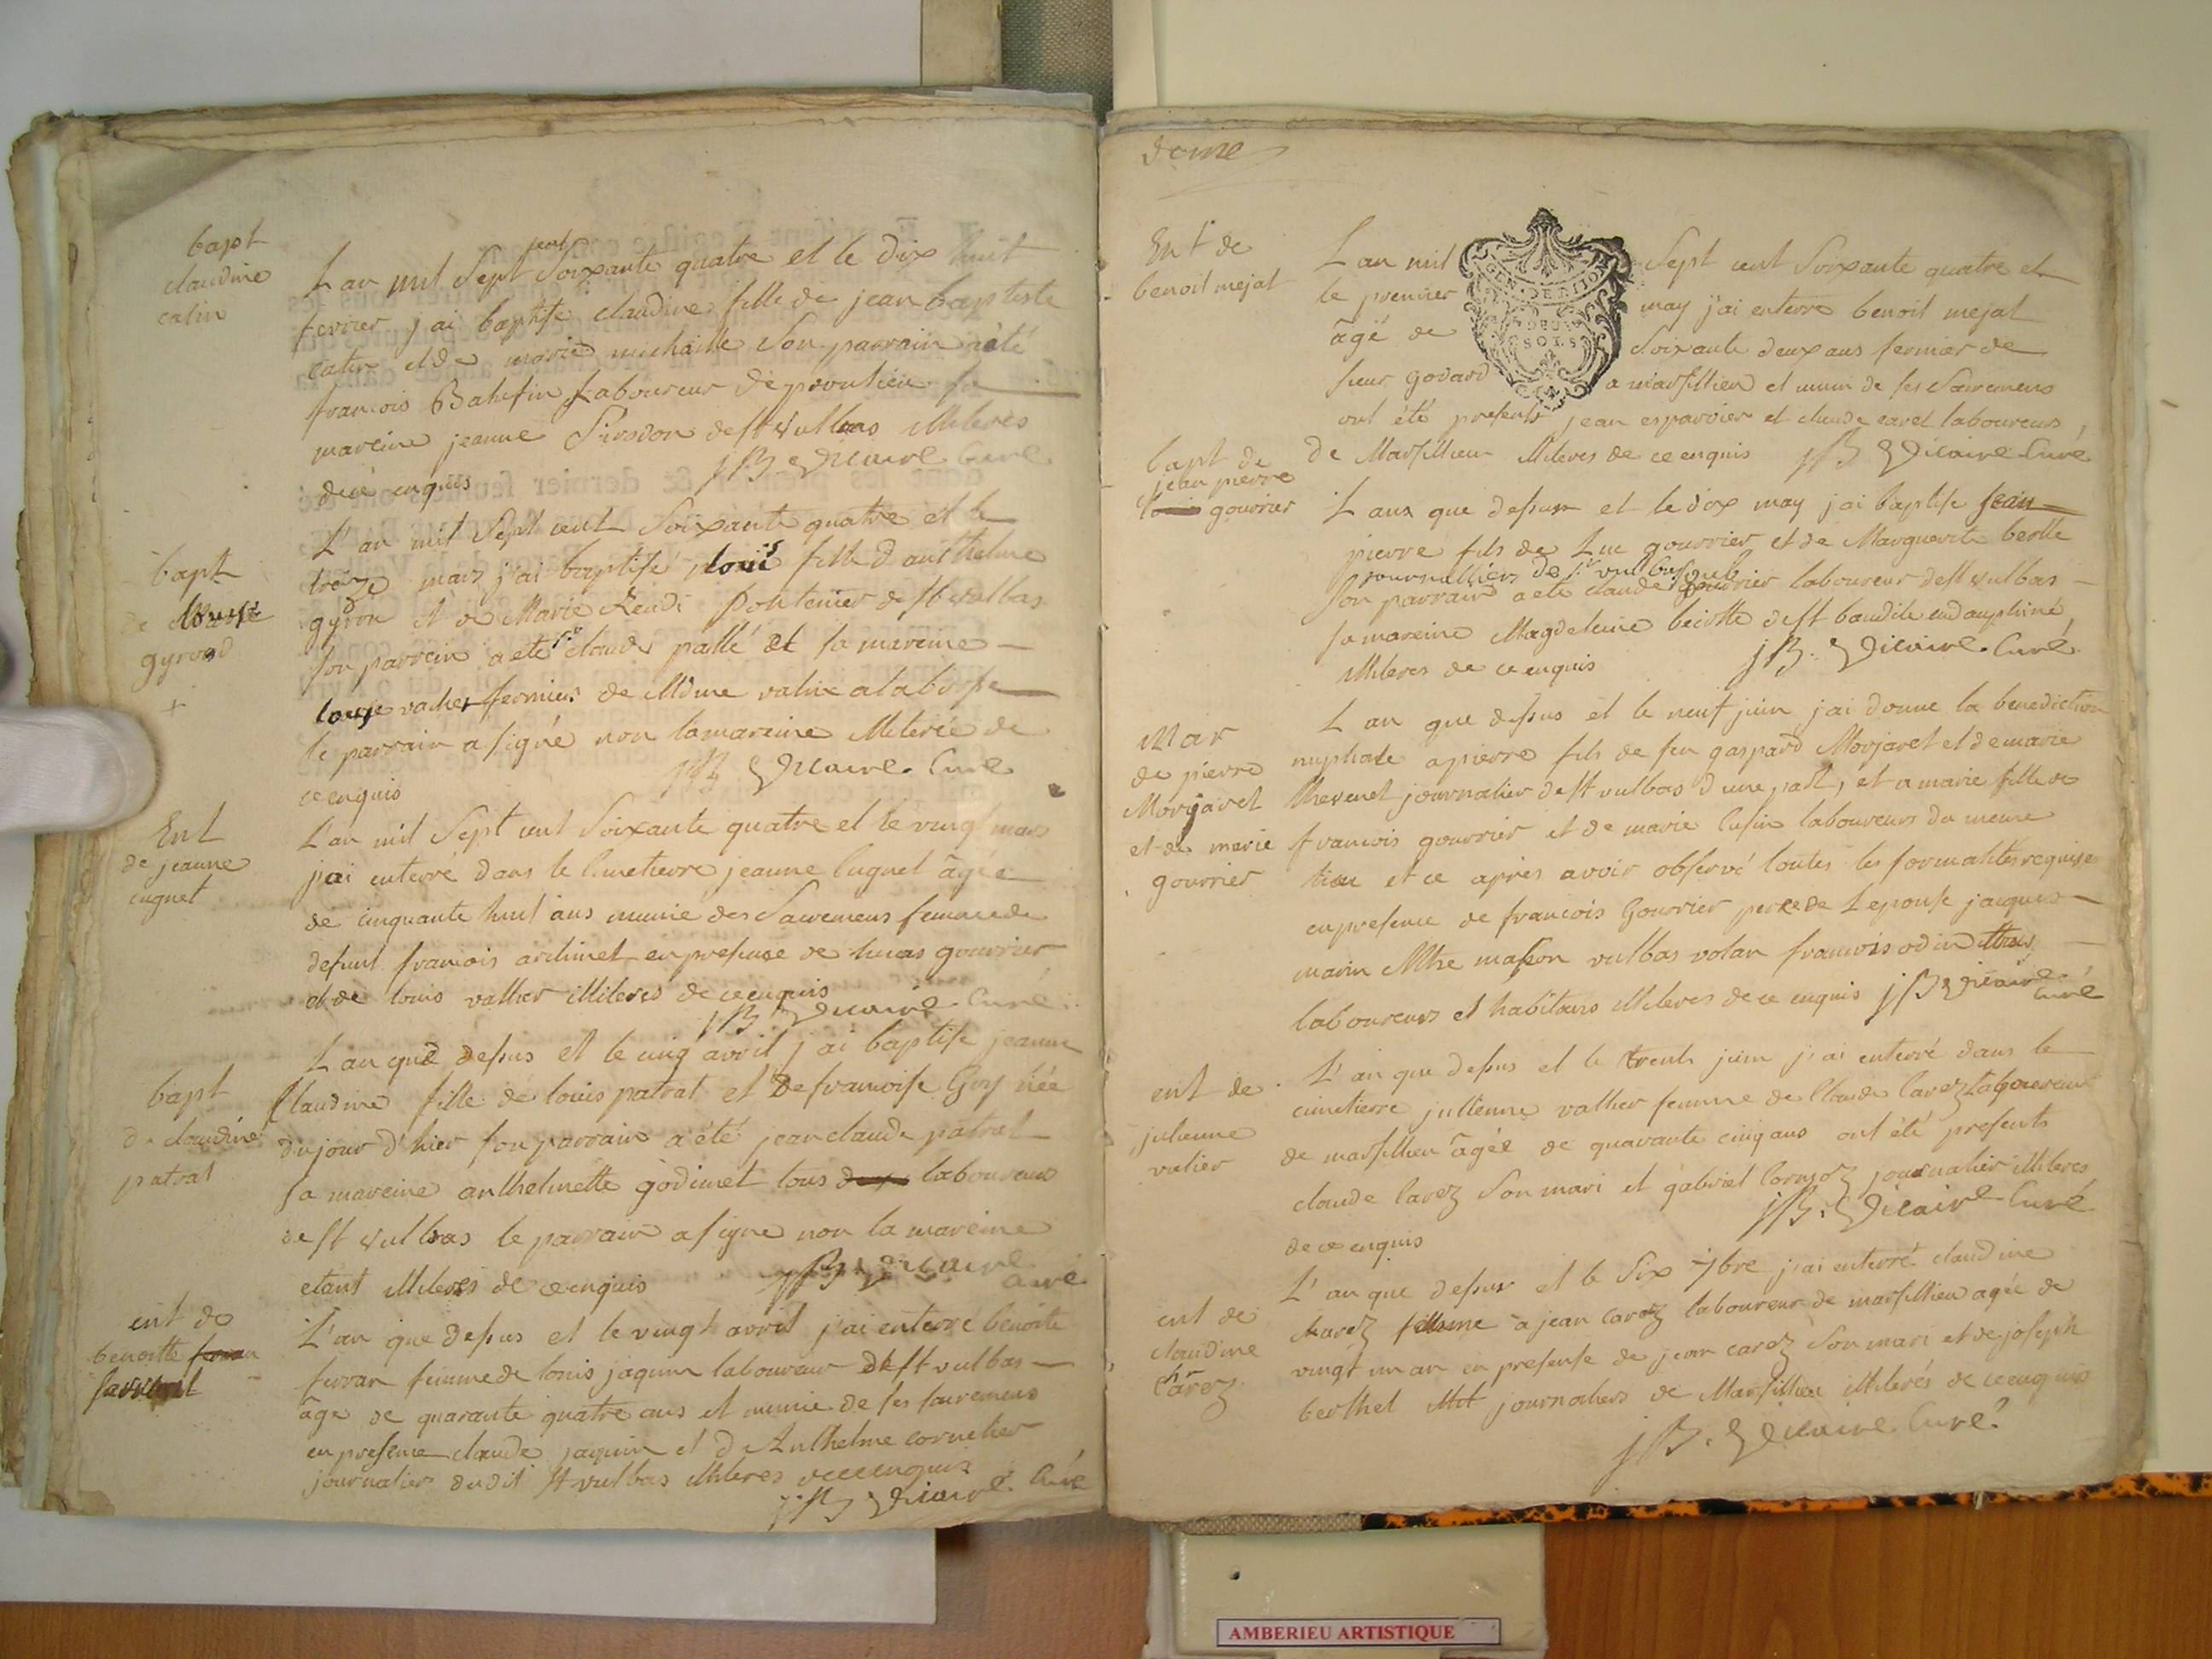 bapt
claudine
catin
L'an mil Sept cent Soixante quatre et le dix huit
fevrier j'ai baptisé claudine fille de jean baptiste
catin et de marie michaille Son parrain a été
francois laboureur de proulieu sa
mareine jeanne de st vulbas illiteres
de ce enquis JB Vicaire Curé
bapt
de
gyroud
+
L'an mil Sept cent Soixante quatre et le
treize mars j'ai baptisé louis fille d'anthelme
gyron et de Marie Rendi pontenier de st vulbas
son parrein a eté sr claude pallé et sa mareine
louise vacher fermier de Mdme valin a la
le parrain a signé non la mareine illiterée de
ce enquis JB Vicaire Curé
Ent
de jeanne
cugnet
L'an mil Sept cent Soixante quatre et le vingt mars
j'ai enterré dans le Cimetierre jeanne Cugnet âgée
de cinquante huit ans munie des Sacremens femme de
defunt francois archinet en presence de lucas gourrier
et de louis vallier illiterés de ce enquis
JB Vicaire Curé
bapt
de claudine
patrat
L'an que dessus et le cinq avril j'ai baptisé jeanne
Claudine fille de louis patrat et de francoise Goy née
du jour d'hier son parrain a été jean claude patrat
sa mareine anthelmette godimet tous laboureurs
de st vulbas le parrain a signe non la mareine
etant illiteres de ce enquis JB Vicaire
Curé
ent de
benoitte
L'an que dessus et le vingt avril j'ai enterré benoite
ferran femme de louis jaquin laboureur de st vulbas
âge de quarante quatre ans et munie de ses sacremens
en presence claude jaquin et d'Anthelme cornelier
journalier dudit st vulbas illiteres de ce enquis
JB Vicaire Curé
deuxe
Ent de
benoit mejat
L'an mil Sept cent Soixante quatre et
le premier may j'ai enterre benoit mejat
âgé de Soixante deux ans fermier de
sieur godard a marsillieu et muni de ses Sacremens
ont été presents jean esparvier et claude carel laboureurs
de Marsillieu illiteres de ce enquis JB Vicaire Curé
GEN. DE DIJON
DEUX
SOLS
bapt de
jean pierre
gourrier
L'an que dessus et le dix may j'ai baptise jean
pierre fils de Luc gourrier et de Marguerite beolle
journalliers de st vulbas
son parrain a eté claude gourrier laboureur de st vulbas
sa mareine Magdeleine de st baudile en dauphiné
illiteres de ce enquis JB. Vicaire. Curé
Mar
de pierre
Morjaret
et de marie
gourrier
L'an que dessus et le neuf juin j'ai donne la benediction
nuptiale a pierre fils de feu gaspard Morjaret et de marie
thevenet journalier de st vulbas d'une part, et a marie fille de
francois gourrier et de marie Cusin laboureurs du meme
lieu et ce après avoir observé toutes les formalités requises
en presence de francois Gourrier pere de L'epouse jacques
marin Mtre masson vulbas volan francois odin tous
laboureurs et habitans illiteres de ce enquis JB Vicaire
Curé
ent de
julienne
valier
L'an que dessus et le trente juin j'ai enterré dans le
cimetierre jullienne vallier femme de Claude Carez Laboureur
de marsillieu âgée de quarante cinq ans ont été presents
claude Carez Son mari et gabriel Cornioz journalier illiteres
de ce enquis JB. Vicaire Curé
ent de
claudine
Carez
L'an que dessus et le Six 7bre j'ai enterré claudine
Carez femme a jean carez laboureur de marsillieu agée de
vingt un an en presense de jean carez Son mari et de joseph
berthet journaliers de Marsillieu illiterés de ce enquis
JB. Vicaire Curé
AMBERIEU ARTISTIQUE